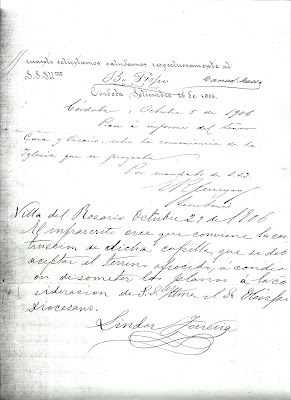 cuanto solicitamos saludamos respetuosamente al
S.S. Ilma
Córdoba, Setiembre 26 de 1906.
Córdoba, Octubre 5 de 1906
Pase á informe del Señor
Cura y Vicario, sobre la conveniencia de la
Iglesia que se proyecta.
Por mandato de S.S.I.
Secretario
Villa del Rosario Octubre 29 de 1906
El infrascrito cree que conviene la cons
truccion de dicha capilla, que se debe
aceptar el terreno ofrecido, á condici
ón de someter los planos á la con
sideracion de S.S. Ilma. el Sr. Obispo
Diocesano.
Lindor Ferreyra